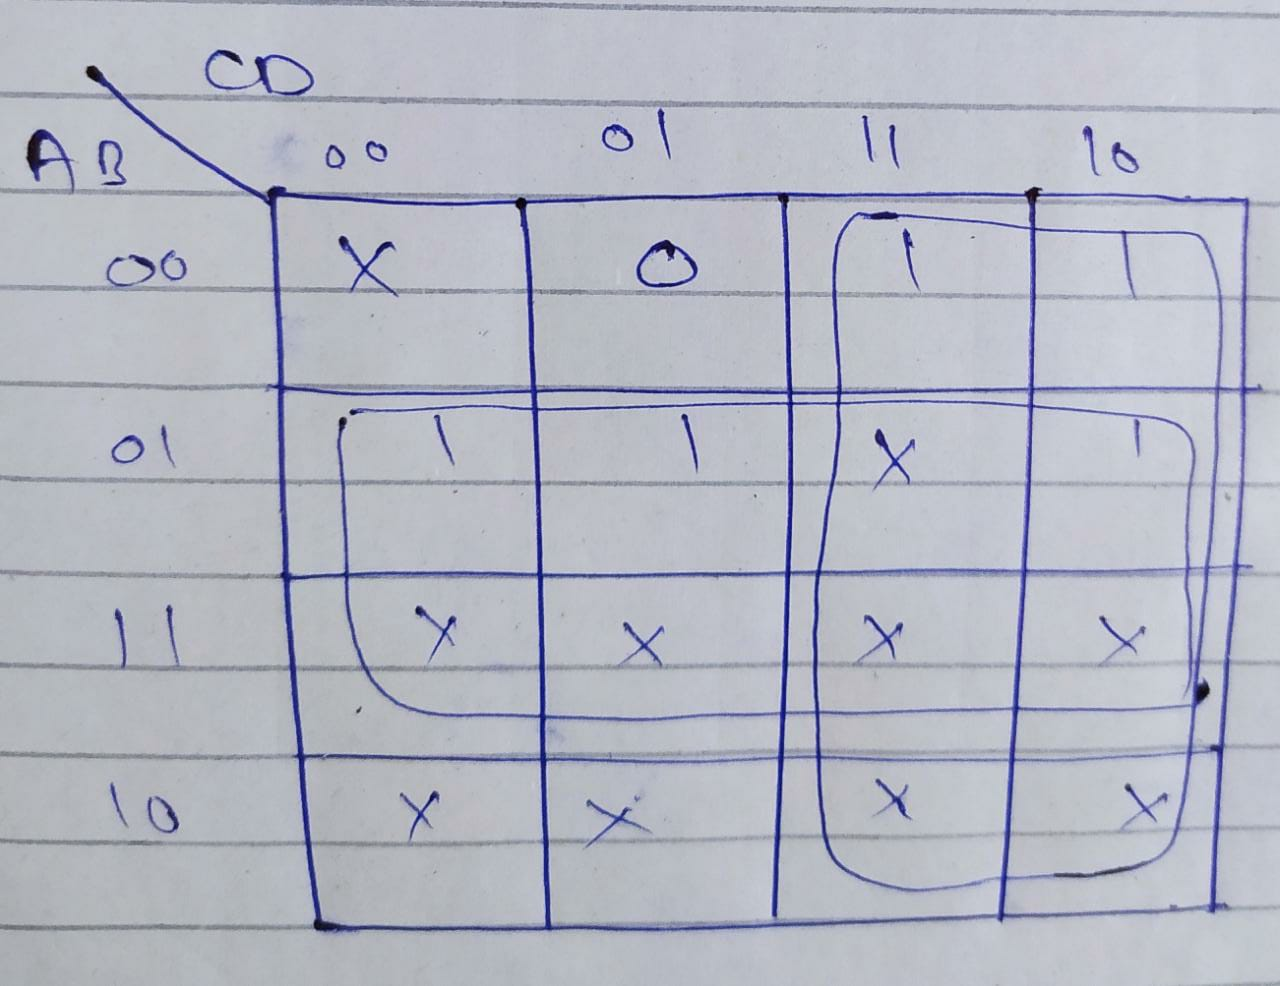 CD
AB 00 01 11 10
00 X 0 1 1
01 1 1 X 1
11 X X X X
10 X X X X